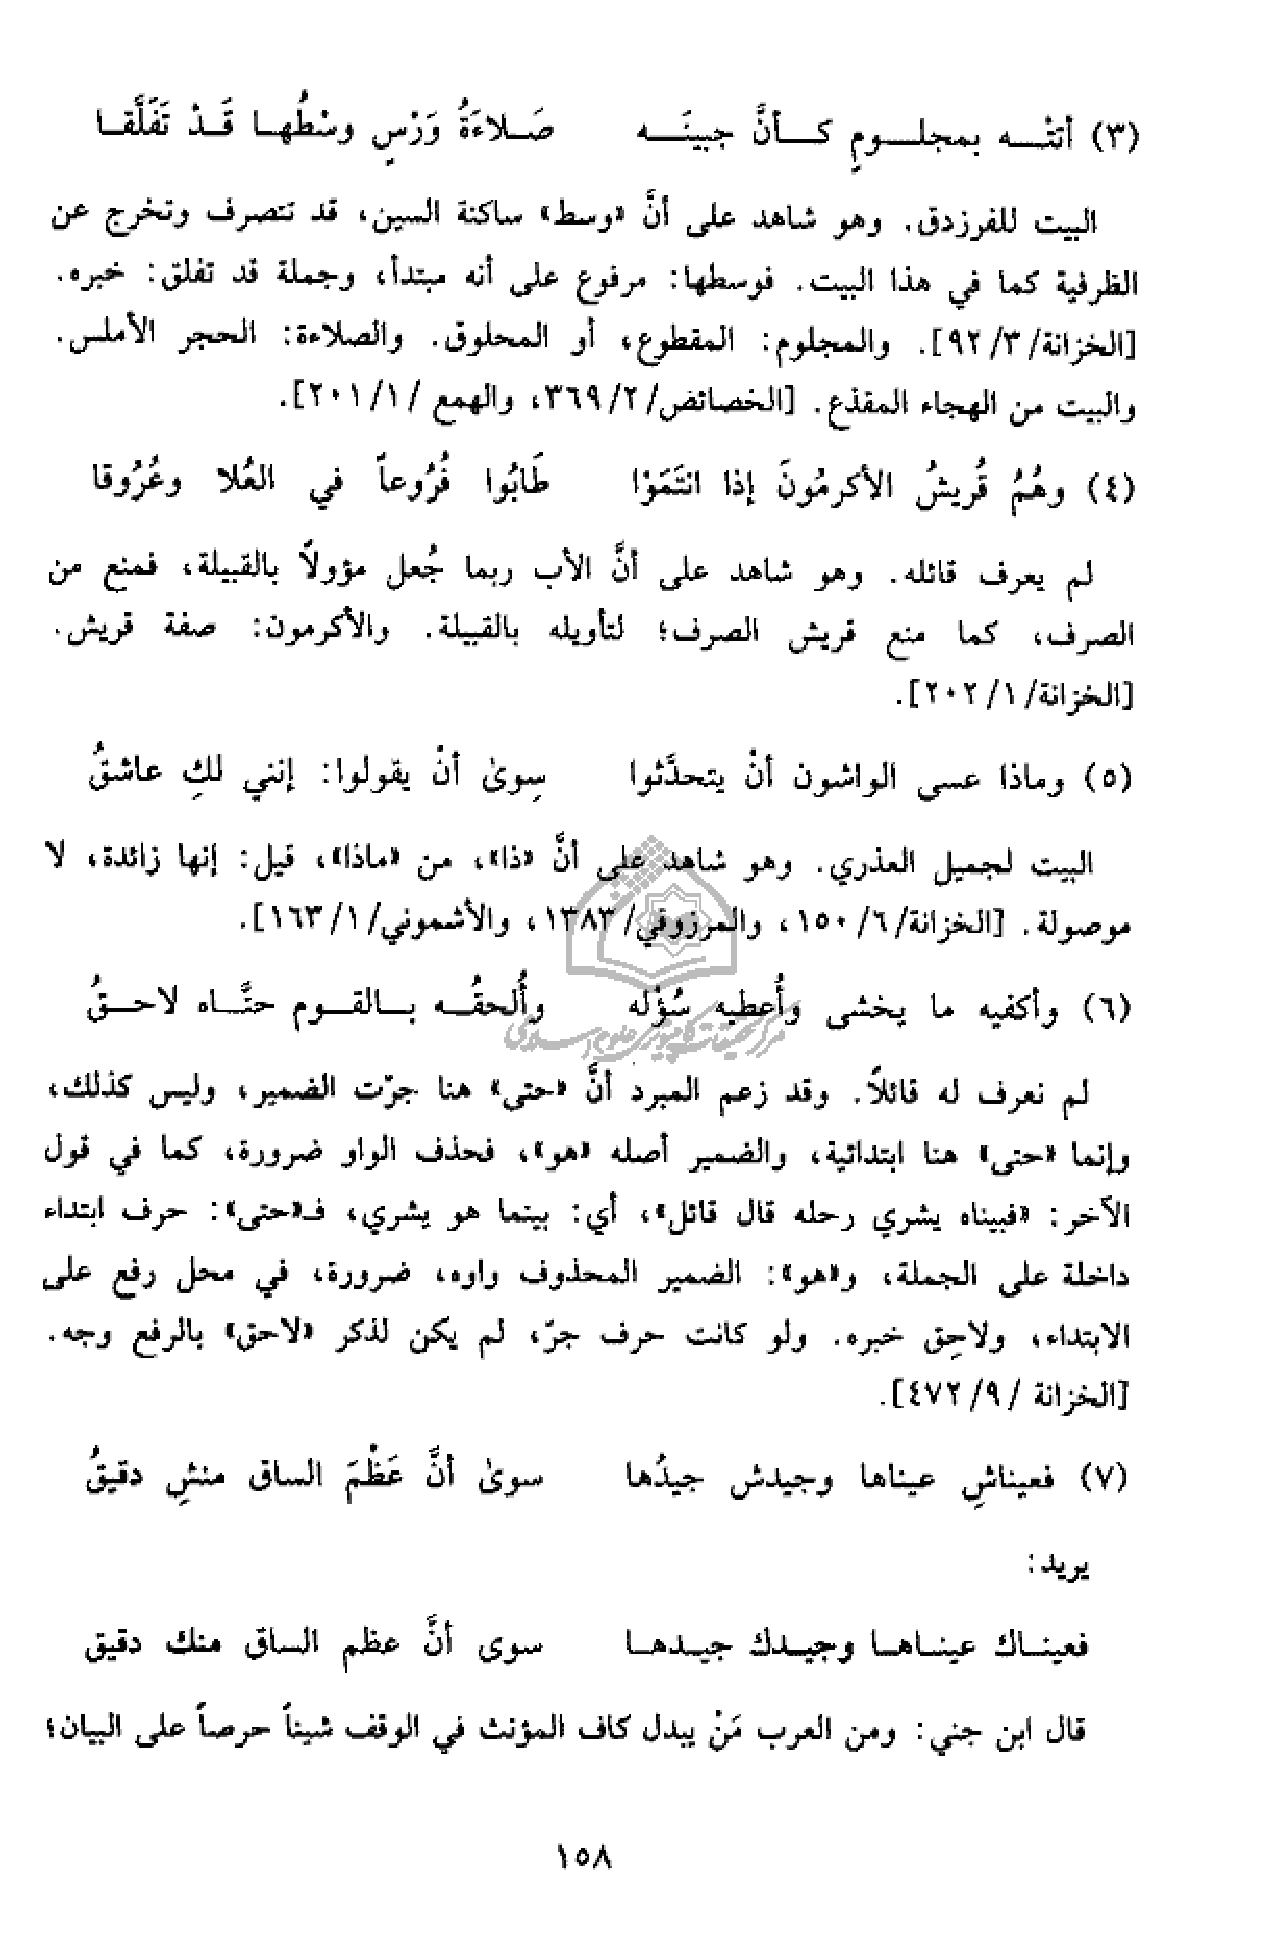 (٣) أتتْـــه بمجلـــومٍ كـــأنَّ جبينَـــه صَــلاءَةُ وَرْسٍ وسْطُهــا قَــدْ تَفَلَّقــا
البيت للفرزدق. وهو شاهد على أنَّ «وسط» ساكنة السين، قد تتصرف وتخرج عن
الظرفية كما في هذا البيت. فوسطها: مرفوع على أنه مبتدأ، وجملة قد تفلق: خبره.
[الخزانة/ ٣/ ٩٢]. والمجلوم: المقطوع، أو المحلوق. والصلاءة: الحجر الأملس.
والبيت من الهجاء المقذع. [الخصائص/ ٢/ ٣٦٩، والهمع / ١/ ٢٠١].
(٤) وهُمُ قُريشُ الأكرمُونَ إذا انتَمَوْا طَابُوا فُرُوعاً في العُلا وعُرُوقا
لم يعرف قائله. وهو شاهد على أنَّ الأب ربما جُعل مؤولاً بالقبيلة، فمنع من
الصرف، كما منع قريش الصرف؛ لتأويله بالقبيلة. والأكرمون: صفة قريش.
[الخزانة/ ١/ ٢٠٢].
(٥) وماذا عسى الواشون أنْ يتحدَّثوا سِوىٰ أنْ يقولوا: إنني لكِ عاشقُ
البيت لجميل العذري. وهو شاهد على أنَّ «ذا»، من «ماذا»، قيل: إنها زائدة، لا
موصولة. [الخزانة/ ٦/ ١٥٠، والمرزوقي/ ١٣٨٣، والأشموني/ ١/ ١٦٣].
(٦) وأكفيه ما يخشى وأُعطيه سُؤْله وأُلحقُــه بــالقــوم حتَّــاه لاحــقُ
مركز تحقيقات كامپيوترى علوم اسلامى
لم نعرف له قائلاً. وقد زعم المبرد أنَّ «حتى» هنا جرّت الضمير، وليس كذلك،
وإنما «حتى» هنا ابتدائية، والضمير أصله «هو»، فحذف الواو ضرورة، كما في قول
الآخر: «فبيناه يشري رحله قال قائل»، أي: بينما هو يشري، فـ«حتى»: حرف ابتداء
داخلة على الجملة، و«هو»: الضمير المحذوف واوه، ضرورة، في محل رفع على
الابتداء، ولاحِق خبره. ولو كانت حرف جرّ، لم يكن لذكر «لاحق» بالرفع وجه.
[الخزانة / ٩/ ٤٧٢].
(٧) فعيناشِ عيناها وجيدش جيدُها سوىٰ أنَّ عَظْمَ الساق منشِ دقيقُ
يريد:
فعينــاك عينــاهــا وجيــدك جيــدهــا سوى أنَّ عظم الساق منك دقيق
قال ابن جني: ومن العرب مَنْ يبدل كاف المؤنث في الوقف شيناً حرصاً على البيان؛
١٥٨